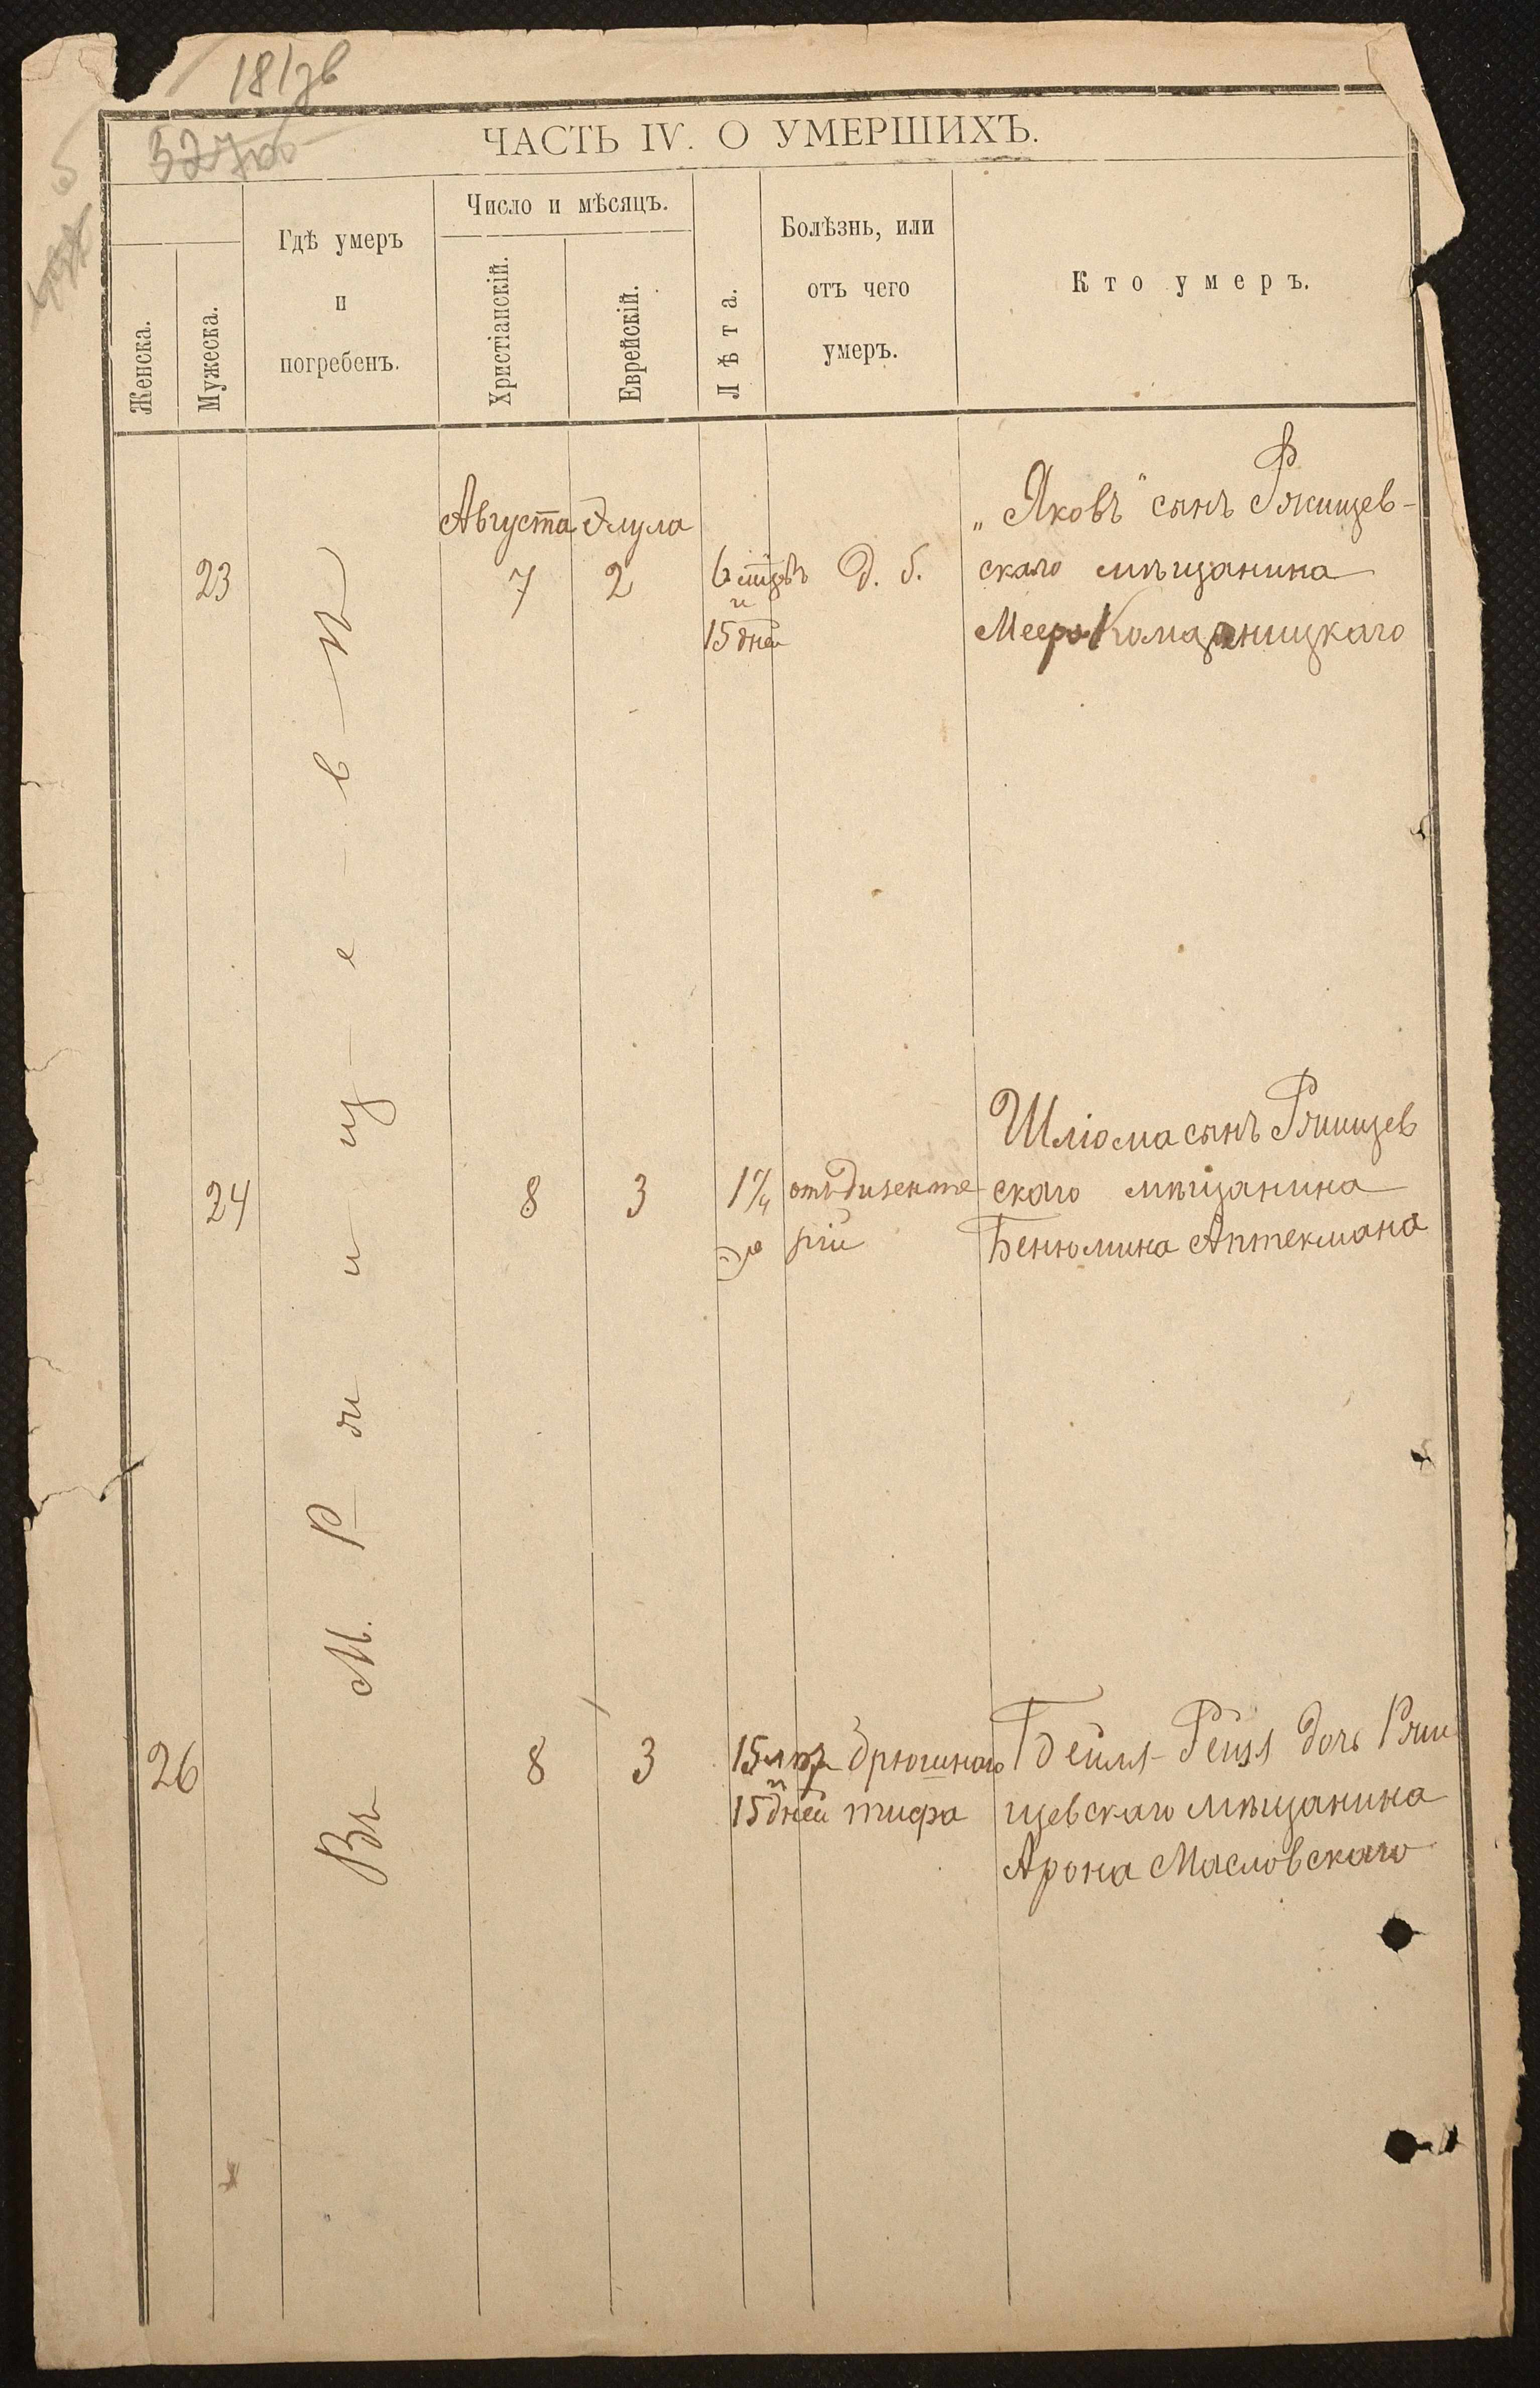 181зв
327об
ЧАСТЬ IV. О УМЕРШИХЪ.
Женска.
Мужеска.
Гдѣ умеръ
и
погребенъ.
Число и мѣсяцъ.
Христіанскій.
Еврейскій.
Лѣта.
Болѣзнь, или
отъ чего
умеръ.
Кто умеръ.
Въ М. Р
Августа Элула
23 7 2
6 мцвъ
и
15 дней
Д. б.
„Яковъ" сынъ Ржищев-
скаго мѣщанина
Меера
24 8 3
1 1/4
отъ дизенте-
рии
Шліома сынъ Ржищев
скаго мѣщанина
Бенюмина Аптекмана
26 8 3
15 лѣтъ
и
15 дней
брюшного
тифа
Бейля-Рейзя дочь Ржи
щевскаго мѣщанина
Арона Масловскаго